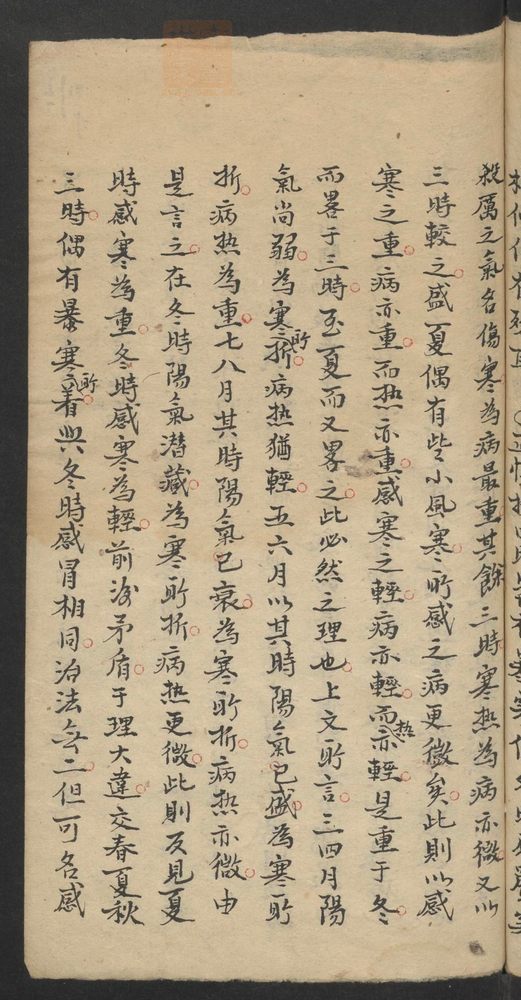 殺厲之氣名傷寒為病最重其餘三時寒熱為病亦微又以
三時較之盛夏偶有些小風寒所感之病更微矣此則以感
寒之重病亦重而热亦重感寒之輕病亦輕而热亦輕是重于冬
而畧于三時至夏而又畧之此必然之理也上文所言三四月陽
氣尚弱為寒所折病热猶輕五六月以其時陽氣已盛為寒所
折病热為重七八月其時陽氣已衰為寒所折病热亦微由
是言之在冬時陽氣潜藏為寒所折病热更微此則反見夏
時感寒為重冬時感寒為輕前後矛盾于理大違交春夏秋
三時偶有暴寒所着與冬時感冒相同治法無二但可名感